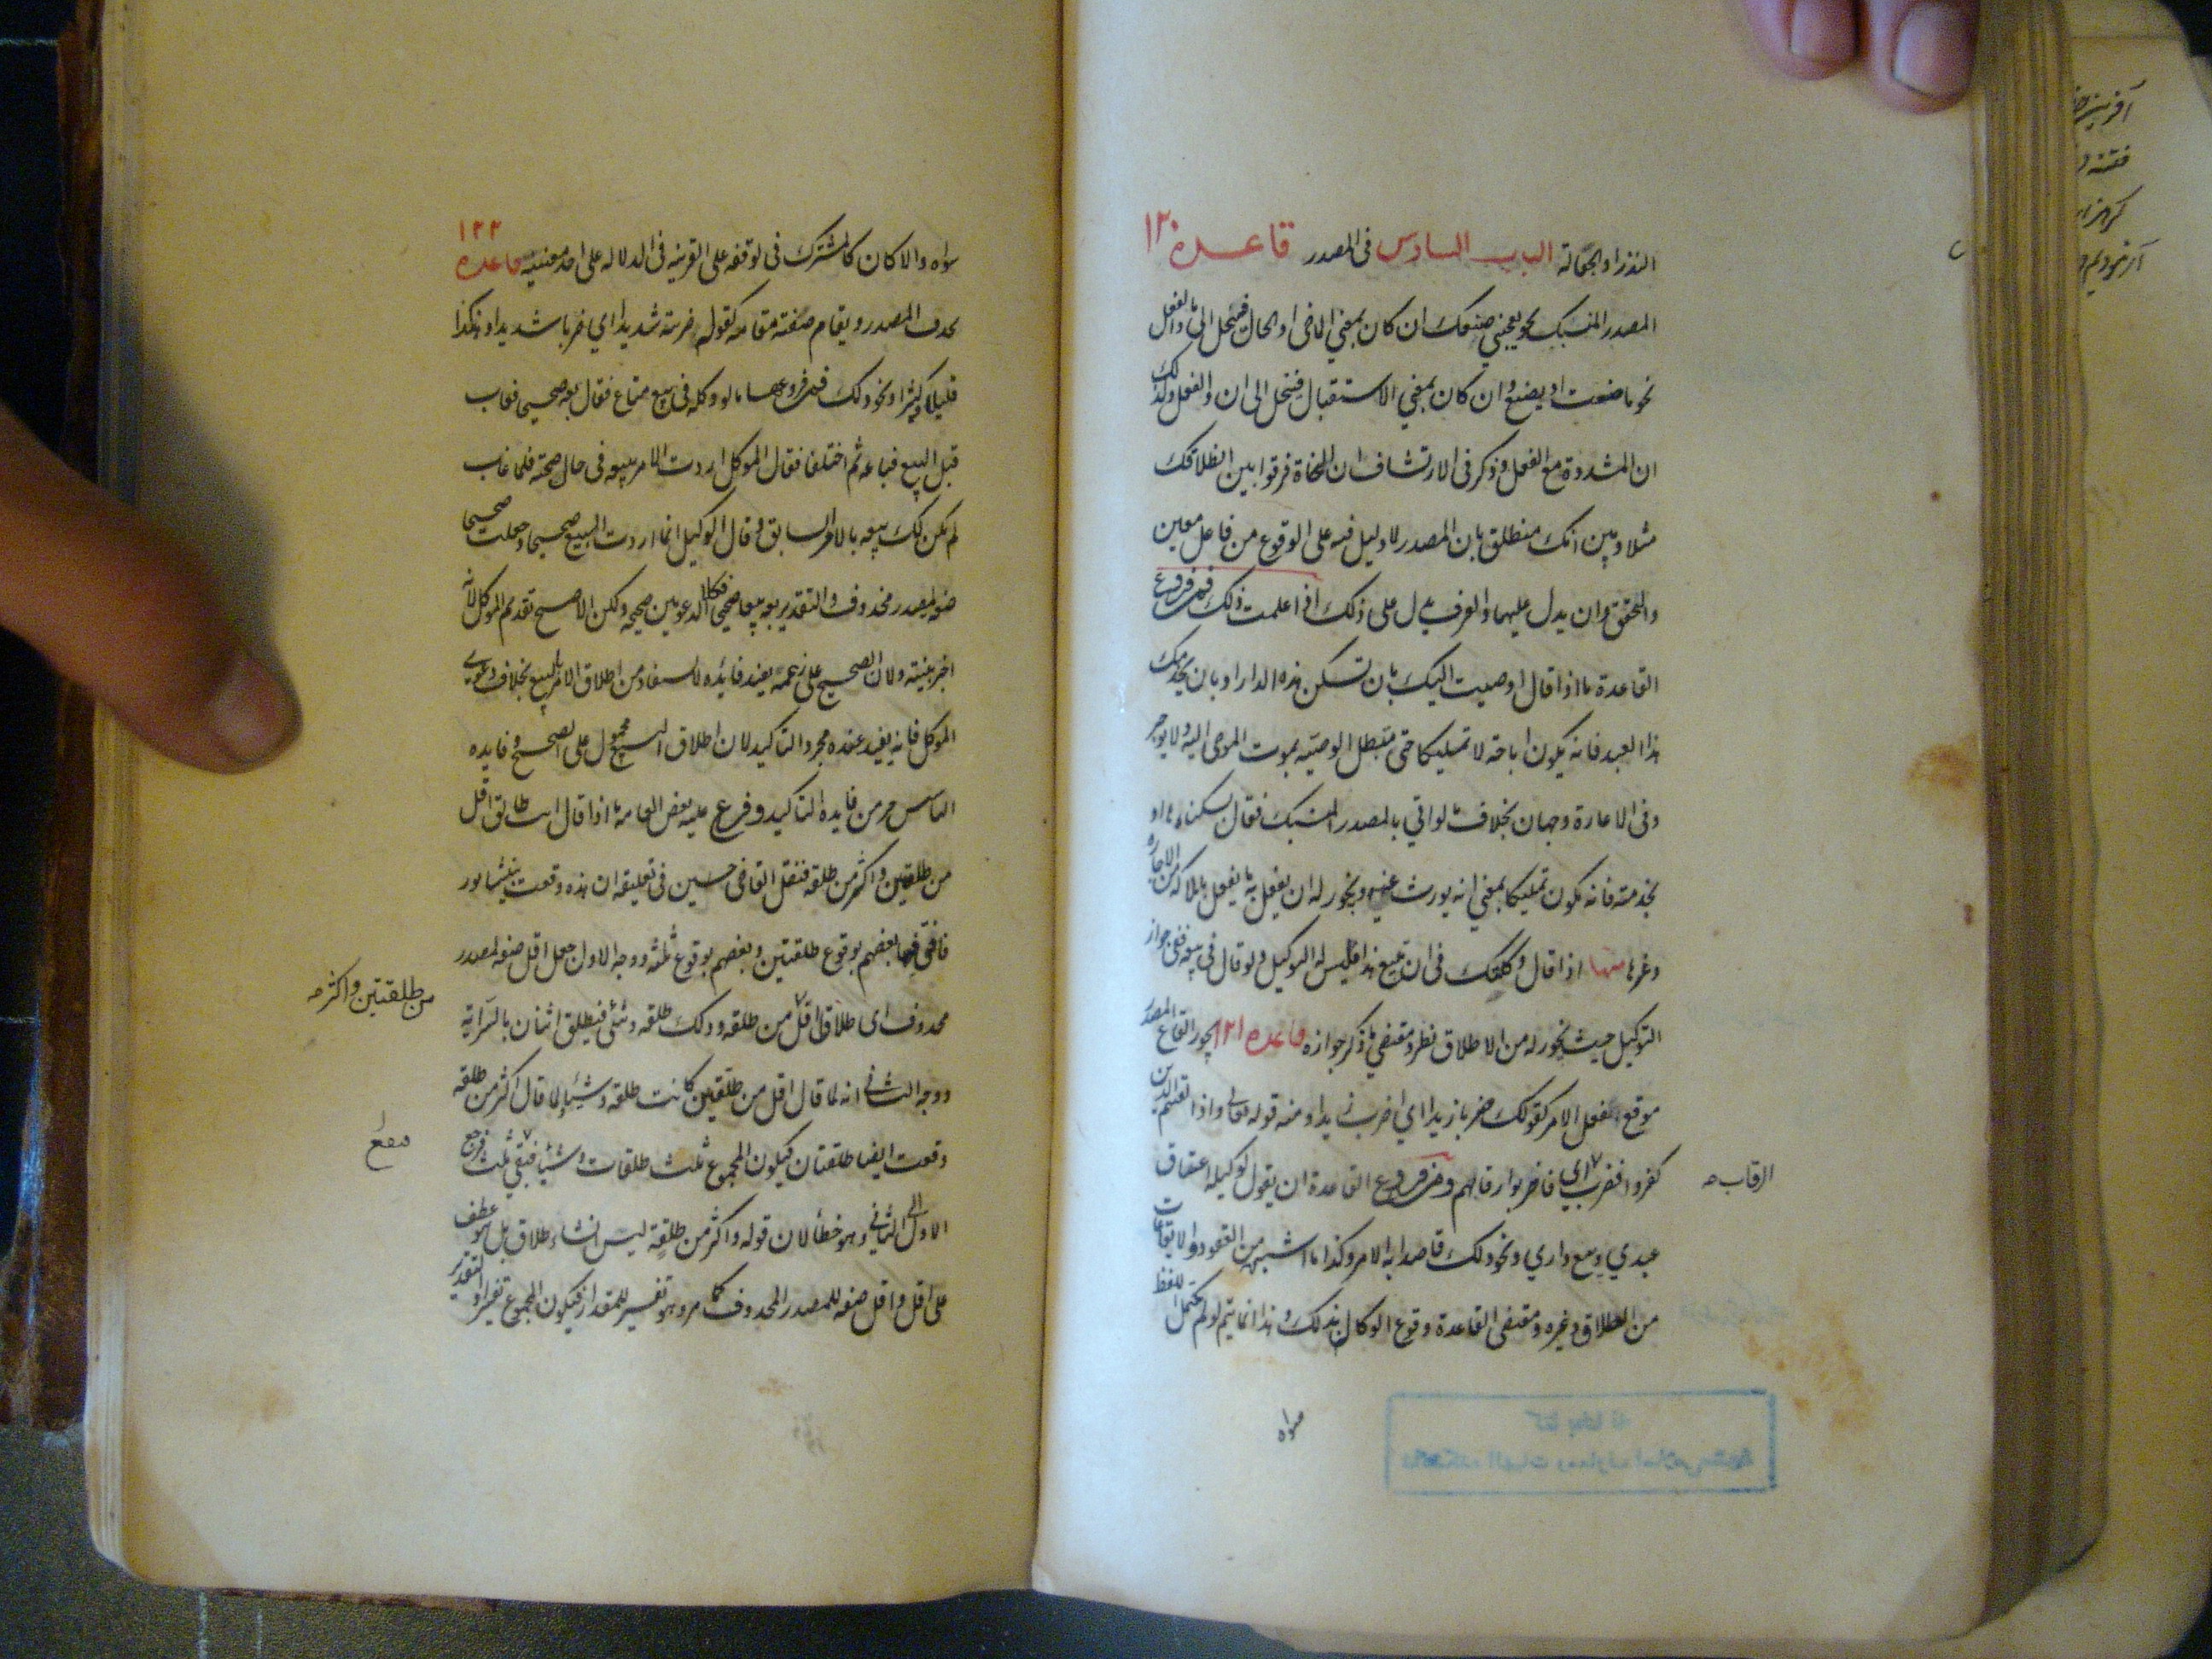 النذر او الجعالة الباب السادس فى المصدر قاعدة ١٢٠
المصدر المنسبك نحو يعجبني صنعك ان كان بمعنى الماضى او الحال فينحل الى ما والفعل
نحو ما صنعت او يصنع وان كان بمعنى الاستقبال فينحل الى ان والفعل وكذلك
ان المشددة مع الفعل وذكر فى الارتشاف ان النحاة فرقوا بين انطلاقك
مثلا وبين انك منطلق بان المصدر لا دليل فيه على الوقوع من فاعل معين
والتحقق وان يدل عليهما والعرف يدل على ذلك اذا علمت ذلك فمن فروع
القاعدة ما اذا قال اوصيت اليك بان تسكن هذه الدار او بان يخدمك
هذا العبد فانه يكون اباحة لا تمليكا حتى تبطل الوصية بموت الموصى اليه ولا يوجر
وفى الاعارة وجهان بخلاف ما لو اتى بالمصدر المنسبك فقال بسكناها او
بخدمته فانه يكون تمليكا بمعنى انه يورث عنه ويجوز له ان يفعل به ما يفعل باملاكه من الاجارة
وغيرها منها اذا قال وكلتك فى ان تبيع هذا فليس له التوكيل ولو قال فى بيعه ففى جواز
التوكيل حيث يجوز له من الاطلاق نظر ومقتضى ما ذكر جوازه قاعدة ١٢١ يجوز ايقاع المصدر
موقع فعل الامر كقولك ضربا زيدا اى اضرب زيدا ومنه قوله تعالى واذا لقيتم الذين
كفروا فضرب اى فاضربوا رقابهم ومن فروع القاعدة ان يقول لوكيله اعتاق
الرقاب صح
عبدي وبيع داري ونحو ذلك قاصدا به الامر وكذا ما اشبهه من العقود والايقاعات
من الطلاق وغيره ومقتضى القاعدة وقوع الوكالة بذلك وهذا انما يتم لو لم يحتمل اللفظ
سواه
سواه والا كان كالمشترك فى توقفه على القرينة فى الدلالة على احد معنييه قاعدة ١٢٢
يحذف المصدر ويقام صفته مقامه كقوله ضربته شديدا اي ضربا شديدا وهكذا
قليلا وكثيرا ونحو ذلك فمن فروعها ما لو وكله فى بيع متاع فقال بعه صحيحى فعاب
قبل البيع فباعه ثم اختلفا فقال الموكل اردت الامر ببيعه فى حال صحته فلما عاب
لم يكن لك بيعه بالامر السابق وقال الوكيل انما اردت البيع صحيحا وجعلت صحيحا
صفة لمصدر محذوف والتقدير بعه بيعا صحيحا فكلا الدعويين صحيحه ولكن الاصح تقديم الموكل لانه
اخبر بنيته ولان الصحيح على زعمه يفيد فائدة لا تستفاد من اطلاق الامر بالبيع بخلاف دعوى
الموكل فانه يفيد عنده مجرد التاكيد لان اطلاق البيع محمول على الصحيح وفايده
التاسيس خير من فايده التاكيد وفرع عليه بعض العامة ما اذا قال انت طالق اقل
من طلقتين واكثر من طلقه فنقل القاضى حسين فى تعليقه ان هذه وقعت بنيشابور
فافتى فيها بعضهم بوقوع طلقتين وبعضهم بوقوع ثلثة ووجه الاول جعل اقل صفة لمصدر
محذوف اى طلاقا اقل من طلقه وذلك طلقه وشئ فيطلق اثنان بالسراية
من طلقتين واكثر صح
ووجه الثانى انه لما قال اقل من طلقتين كانت طلقه وشيئا ولما قال اكثر من طلقه
وقعت ايضا طلقتان فيكون المجموع ثلث طلقات وشيئا فيقع ثلث فرجع
فيقع
الاول الى الثانى وهو خطأ لان قوله واكثر من طلقة ليس انشاء طلاق بل هو عطف
على اقل واقل صفة للمصدر المحذوف كما مر وهو تفسير للمقدار فيكون المجموع تفسيرا والتقدير